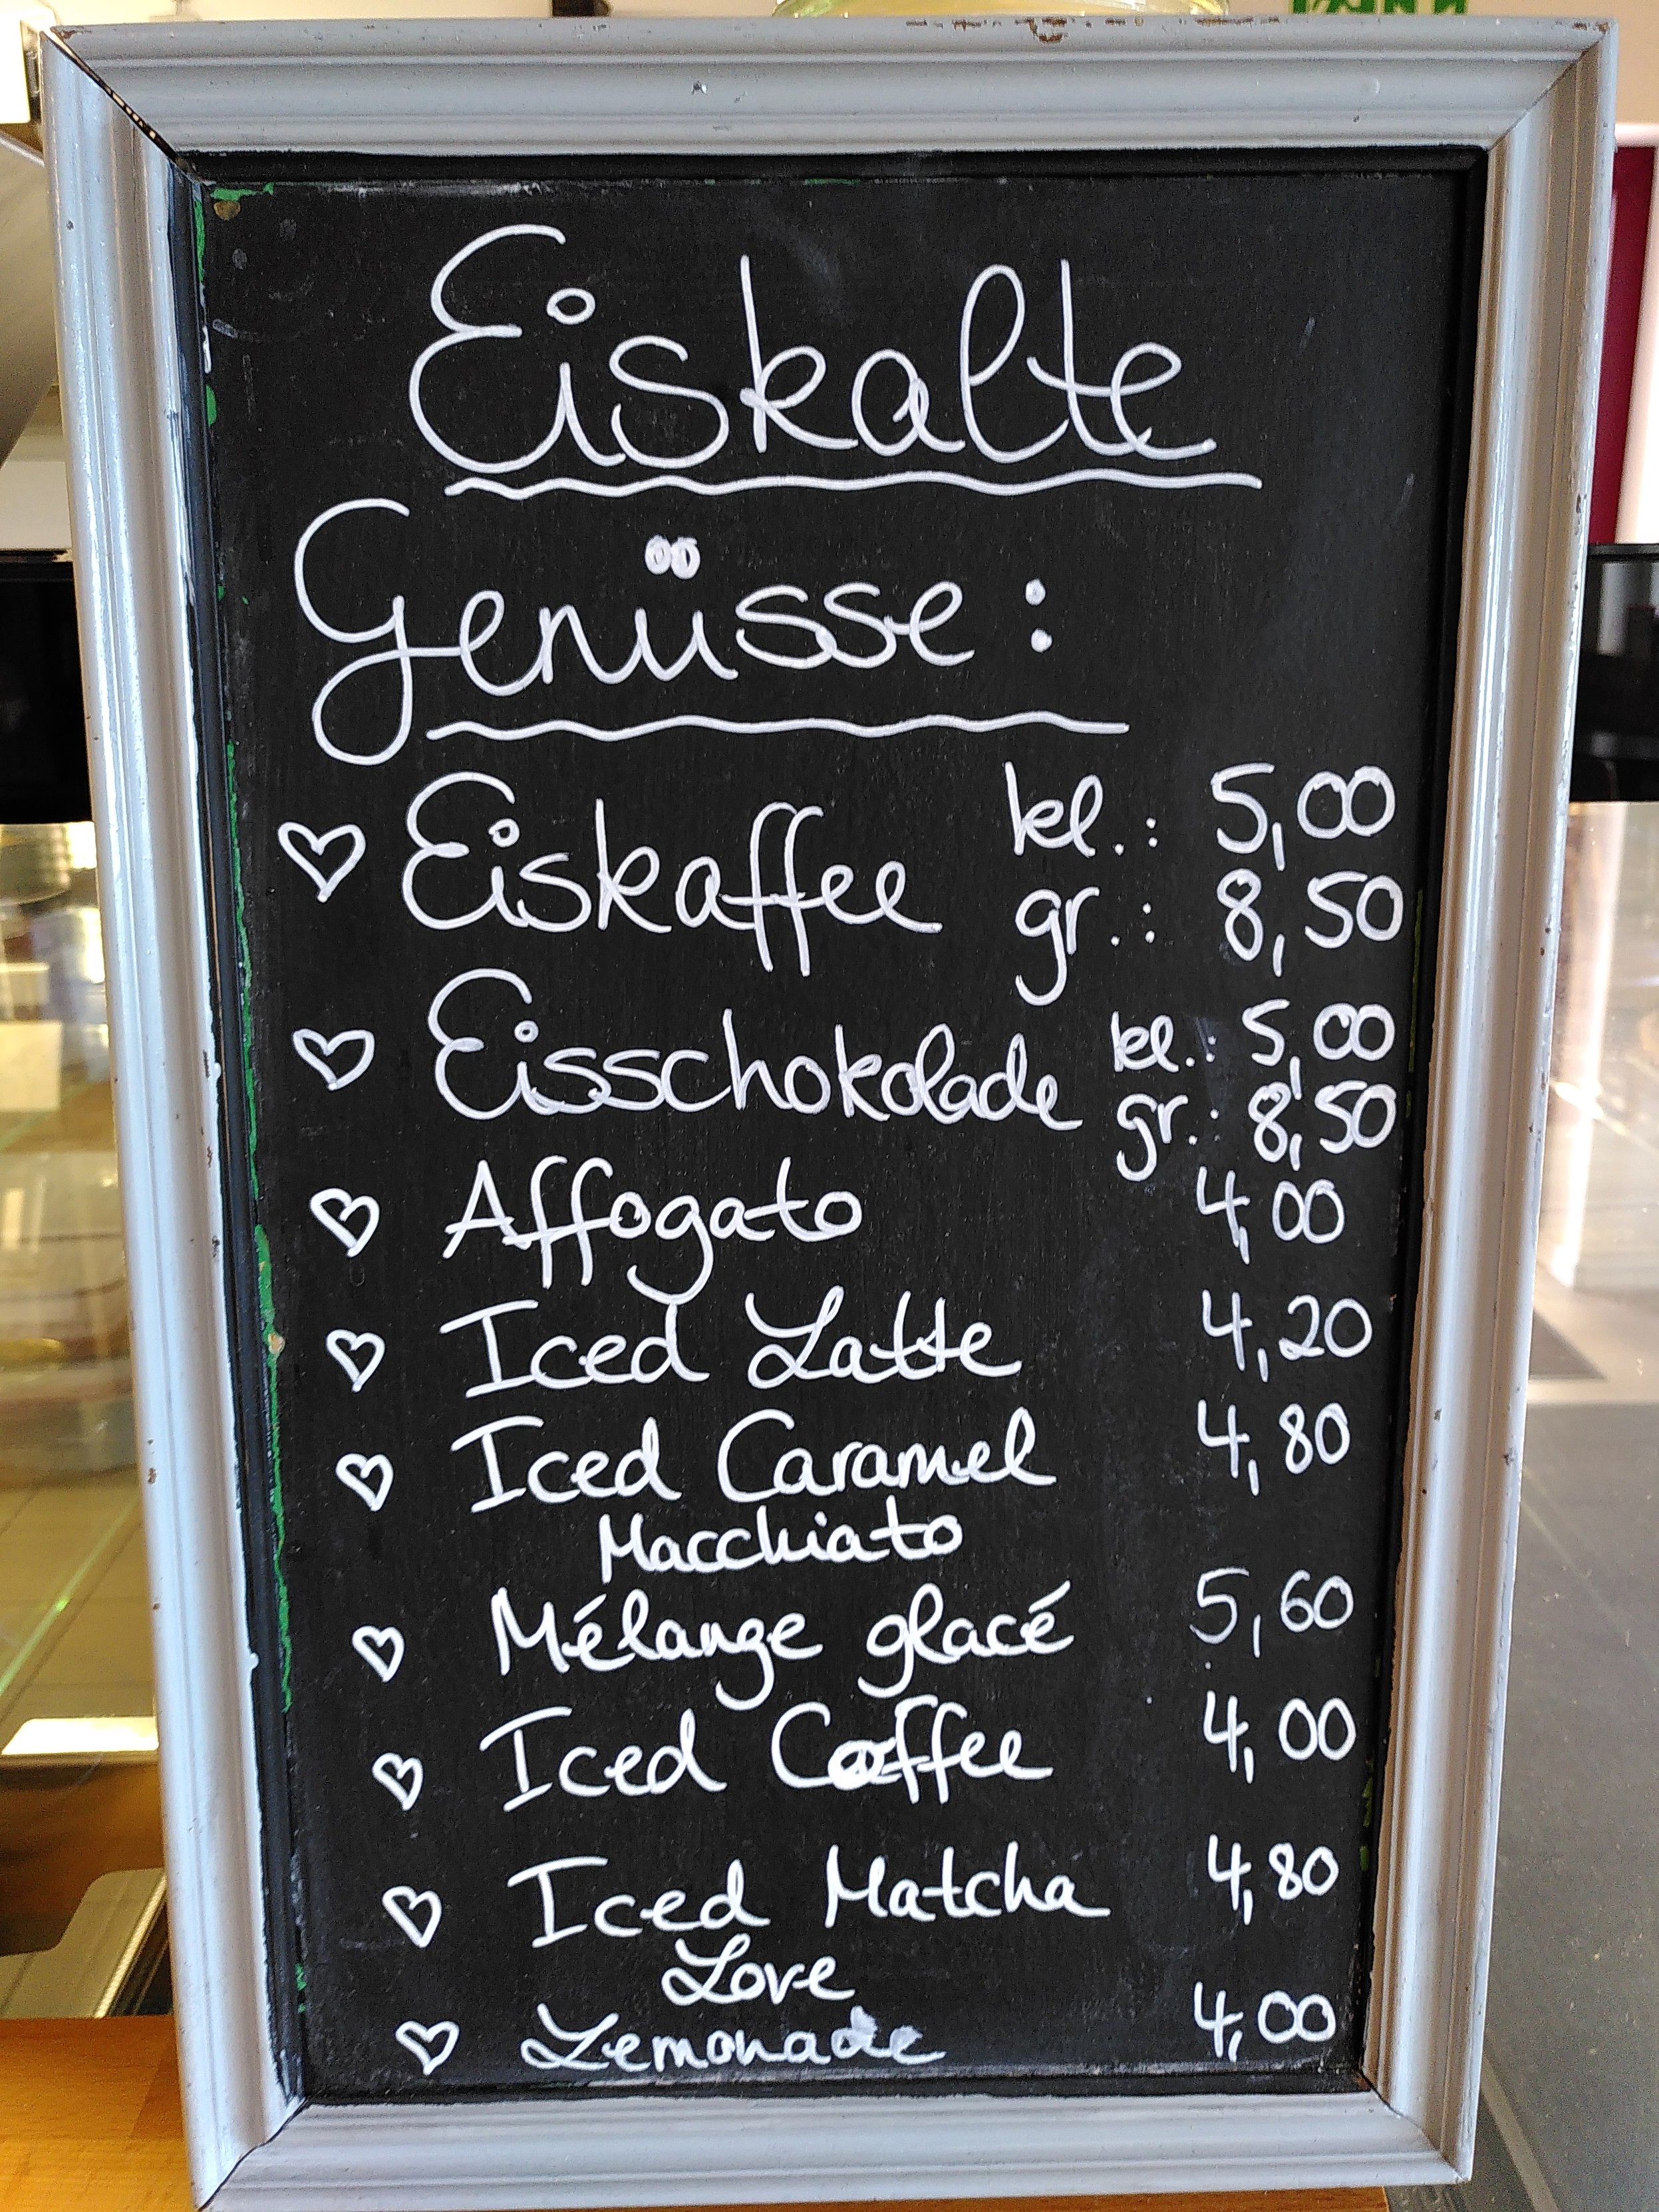 Eiskalte
Genüsse:
Eiskaffee kl.: 5,00
gr.: 8,50
Eisschokolade kl.: 5,00
gr.: 8,50
Affogato 4,00
Iced Latte 4,20
Iced Caramel 4,80
Macchiato
Mélange glacé 5,60
Iced Coffee 4,00
Iced Matcha 4,80
Love
Lemonade 4,00